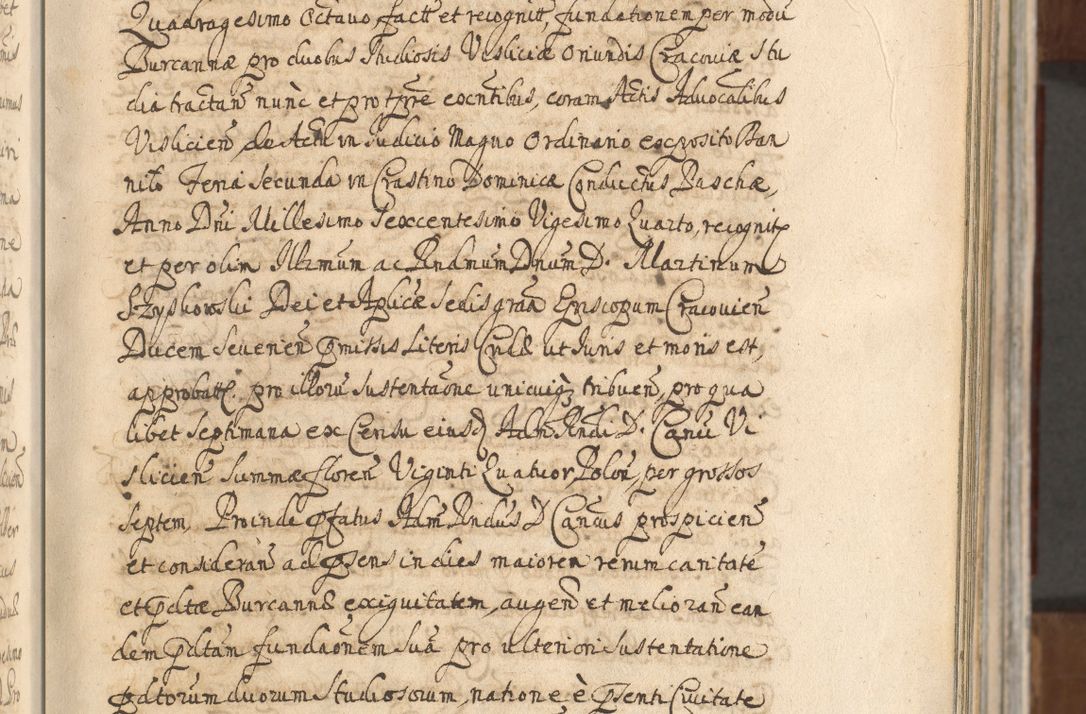 Quadragesimo Octavo factt et recognitt, fundationem per modũ
Burcannæ pro duobus Studiosis Visliciæ Oriundis Cracoviæ Stu
dia tractań nunc et pro tpre exntibus, coram Actis Advocalibus
Vislicień de Actu in Judicio Magno Ordinario exposito Ban
nito Feria Secunda in Crastino Dominicæ Conductus Paschæ,
Anno Dni Millesimo Sexcentesimo Vigesimo Quarto, recognitt
et per olim Illrmum ac Rndmum Dnum D. Martinum
Szyszkowski Dei et Aplicæ Sedis graã Episcopum Cracovień
Ducem Severień pmissis Literis ut Juris et moris est,
approbatt. pro illorũ sustentaõne unicuiqz tribueñ, pro qua
libet Septimana ex Censu eiusd Adm Rndi D. Canci Vi
slicień Summæ floreń Viginti Quatuor Poloń, per grossos
Septem. Proinde pfatus Adm Rndus D Cancus prospicień
et considerań ad psens in dies maiorem rerum caritatẽ
et pdtæ Burcannæ exiguitatem, augeń et meliorań ean
dem pdtam fundaõnem suã pro ulteriori sustentatione
pdtorum duorum Studiosorum, natione è psenti Civitate